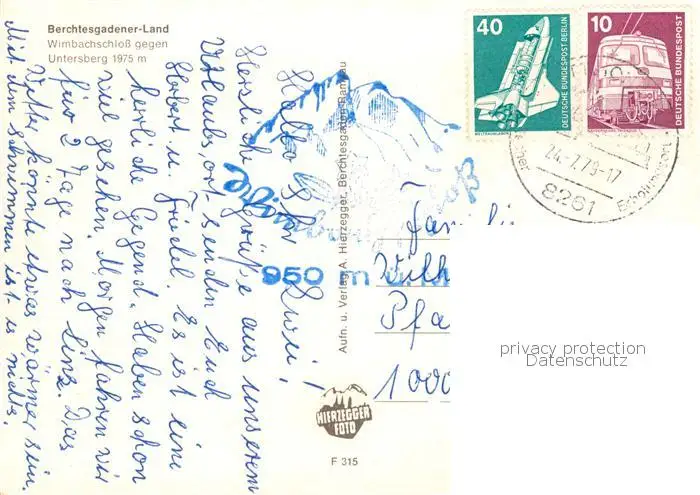 Berchtesgadener-Land
Wimbachschloß gegen
Untersberg 1975 m
Hallo Ihr Zwei!
Herzliche Grüße aus unserem
Urlaubsort senden Euch
Herbert u. Friedel. Es ist eine
herrliche Gegend. Haben schon
viel gesehen. Morgen fahren wir
für 2 Tage nach Linz. Das
Wetter könnte etwas wärmer sein.
Mit dem schwimmen ist es
nichts.
Aufn. u. Verlag A. Hierzegger, Berchtesgaden-Ramsau
950 m ü.M
HIERZEGGER
FOTO
F 315
40
DEUTSCHE BUNDESPOST BERLIN
10
DEUTSCHE BUNDESPOST
24.-7.79-17
8261
Fami
Wilh
Pfa
1000
privacy protection
Datenschutz